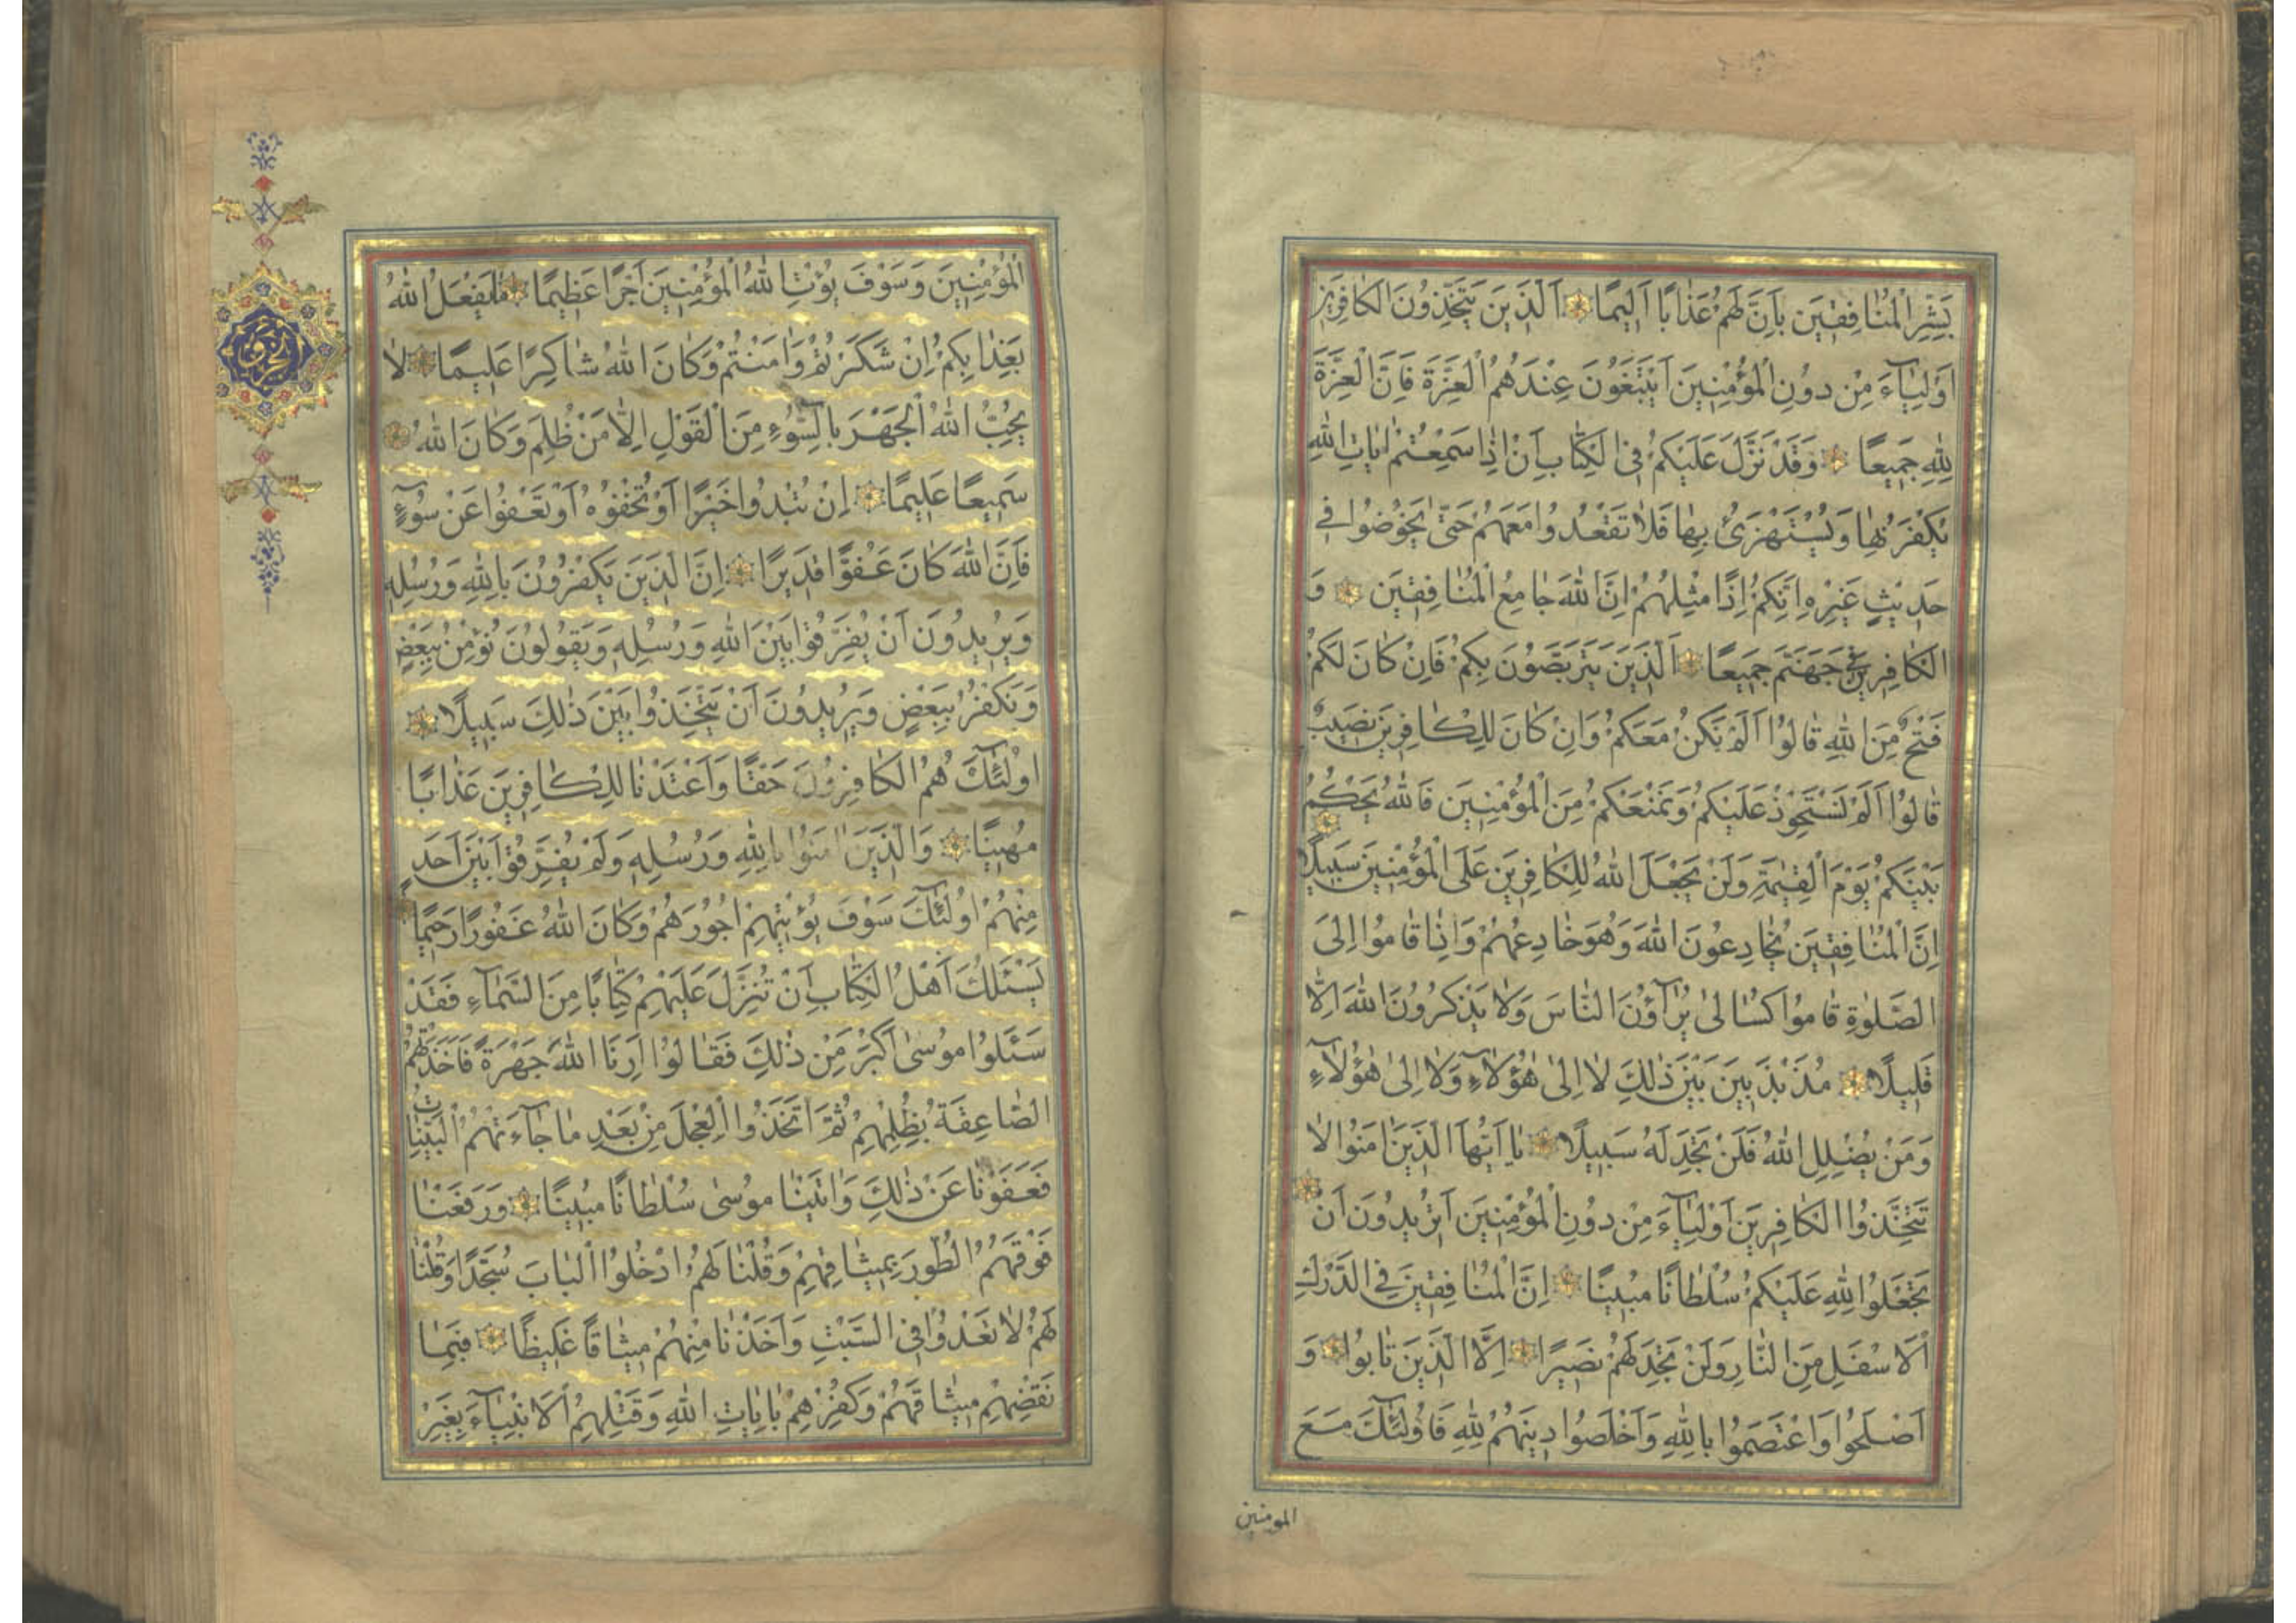 بَشِّرِ الْمُنَافِقِينَ بِأَنَّ لَهُمْ عَذَابًا اَلِيمًا اَلَّذِينَ يَتَّخِذُونَ الْكَافِرِينَ
اَوْلِيَآءَ مِنْ دُونِ الْمُؤْمِنِينَ اَيَبْتَغُونَ عِنْدَهُمُ الْعِزَّةَ فَاِنَّ الْعِزَّةَ
لِلّٰهِ جَمِيعًا وَقَدْ نَزَّلَ عَلَيْكُمْ فِي الْكِتَابِ اَنْ اِذَا سَمِعْتُمْ اٰيَاتِ اللّٰهِ
يُكْفَرُ بِهَا وَيُسْتَهْزَئُ بِهَا فَلَا تَقْعُدُوا مَعَهُمْ حَتّٰى يَخُوضُوا فِي
حَدِيثٍ غَيْرِهِ اِنَّكُمْ اِذًا مِثْلُهُمْ اِنَّ اللّٰهَ جَامِعُ الْمُنَافِقِينَ وَ
الْكَافِرِينَ فِي جَهَنَّمَ جَمِيعًا اَلَّذِينَ يَتَرَبَّصُونَ بِكُمْ فَاِنْ كَانَ لَكُمْ
فَتْحٌ مِنَ اللّٰهِ قَالُوا اَلَمْ نَكُنْ مَعَكُمْ وَاِنْ كَانَ لِلْكَافِرِينَ نَصِيبٌ
قَالُوا اَلَمْ نَسْتَحْوِذْ عَلَيْكُمْ وَنَمْنَعْكُمْ مِنَ الْمُؤْمِنِينَ فَاللّٰهُ يَحْكُمُ
بَيْنَكُمْ يَوْمَ الْقِيٰمَةِ وَلَنْ يَجْعَلَ اللّٰهُ لِلْكَافِرِينَ عَلَى الْمُؤْمِنِينَ سَبِيلًا
اِنَّ الْمُنَافِقِينَ يُخَادِعُونَ اللّٰهَ وَهُوَ خَادِعُهُمْ وَاِذَا قَامُوا اِلَى
الصَّلٰوةِ قَامُوا كُسَالٰى يُرَآؤُنَ النَّاسَ وَلَا يَذْكُرُونَ اللّٰهَ اِلَّا
قَلِيلًا مُذَبْذَبِينَ بَيْنَ ذٰلِكَ لَا اِلٰى هٰؤُلَآءِ وَلَا اِلٰى هٰؤُلَآءِ
وَمَنْ يُضْلِلِ اللّٰهُ فَلَنْ تَجِدَ لَهُ سَبِيلًا يَا اَيُّهَا الَّذِينَ اٰمَنُوا لَا
تَتَّخِذُوا الْكَافِرِينَ اَوْلِيَآءَ مِنْ دُونِ الْمُؤْمِنِينَ اَتُرِيدُونَ اَنْ
تَجْعَلُوا لِلّٰهِ عَلَيْكُمْ سُلْطَانًا مُبِينًا اِنَّ الْمُنَافِقِينَ فِي الدَّرْكِ
الْاَسْفَلِ مِنَ النَّارِ وَلَنْ تَجِدَ لَهُمْ نَصِيرًا اِلَّا الَّذِينَ تَابُوا وَ
اَصْلَحُوا وَاعْتَصَمُوا بِاللّٰهِ وَاَخْلَصُوا دِينَهُمْ لِلّٰهِ فَاُولٰٓئِكَ مَعَ
المومنين
الْمُؤْمِنِينَ وَسَوْفَ يُؤْتِ اللّٰهُ الْمُؤْمِنِينَ اَجْرًا عَظِيمًا مَا يَفْعَلُ اللّٰهُ
بِعَذَابِكُمْ اِنْ شَكَرْتُمْ وَاٰمَنْتُمْ وَكَانَ اللّٰهُ شَاكِرًا عَلِيمًا لَا
يُحِبُّ اللّٰهُ الْجَهْرَ بِالسُّوٓءِ مِنَ الْقَوْلِ اِلَّا مَنْ ظُلِمَ وَكَانَ اللّٰهُ
سَمِيعًا عَلِيمًا اِنْ تُبْدُوا خَيْرًا اَوْ تُخْفُوهُ اَوْ تَعْفُوا عَنْ سُوٓءٍ
فَاِنَّ اللّٰهَ كَانَ عَفُوًّا قَدِيرًا اِنَّ الَّذِينَ يَكْفُرُونَ بِاللّٰهِ وَرُسُلِهِ
وَيُرِيدُونَ اَنْ يُفَرِّقُوا بَيْنَ اللّٰهِ وَرُسُلِهِ وَيَقُولُونَ نُؤْمِنُ بِبَعْضٍ
وَنَكْفُرُ بِبَعْضٍ وَيُرِيدُونَ اَنْ يَتَّخِذُوا بَيْنَ ذٰلِكَ سَبِيلًا
اُولٰٓئِكَ هُمُ الْكَافِرُونَ حَقًّا وَاَعْتَدْنَا لِلْكَافِرِينَ عَذَابًا
مُهِينًا وَالَّذِينَ اٰمَنُوا بِاللّٰهِ وَرُسُلِهِ وَلَمْ يُفَرِّقُوا بَيْنَ اَحَدٍ
مِنْهُمْ اُولٰٓئِكَ سَوْفَ يُؤْتِيهِمْ اُجُورَهُمْ وَكَانَ اللّٰهُ غَفُورًا رَحِيمًا
يَسْئَلُكَ اَهْلُ الْكِتَابِ اَنْ تُنَزِّلَ عَلَيْهِمْ كِتَابًا مِنَ السَّمَآءِ فَقَدْ
سَئَلُوا مُوسٰى اَكْبَرَ مِنْ ذٰلِكَ فَقَالُوا اَرِنَا اللّٰهَ جَهْرَةً فَاَخَذَتْهُمُ
الصَّاعِقَةُ بِظُلْمِهِمْ ثُمَّ اتَّخَذُوا الْعِجْلَ مِنْ بَعْدِ مَا جَآءَتْهُمُ الْبَيِّنَاتُ
فَعَفَوْنَا عَنْ ذٰلِكَ وَاٰتَيْنَا مُوسٰى سُلْطَانًا مُبِينًا وَرَفَعْنَا
فَوْقَهُمُ الطُّورَ بِمِيثَاقِهِمْ وَقُلْنَا لَهُمُ ادْخُلُوا الْبَابَ سُجَّدًا وَقُلْنَا
لَهُمْ لَا تَعْدُوا فِي السَّبْتِ وَاَخَذْنَا مِنْهُمْ مِيثَاقًا غَلِيظًا فَبِمَا
نَقْضِهِمْ مِيثَاقَهُمْ وَكُفْرِهِمْ بِاٰيَاتِ اللّٰهِ وَقَتْلِهِمُ الْاَنْبِيَآءَ بِغَيْرِ